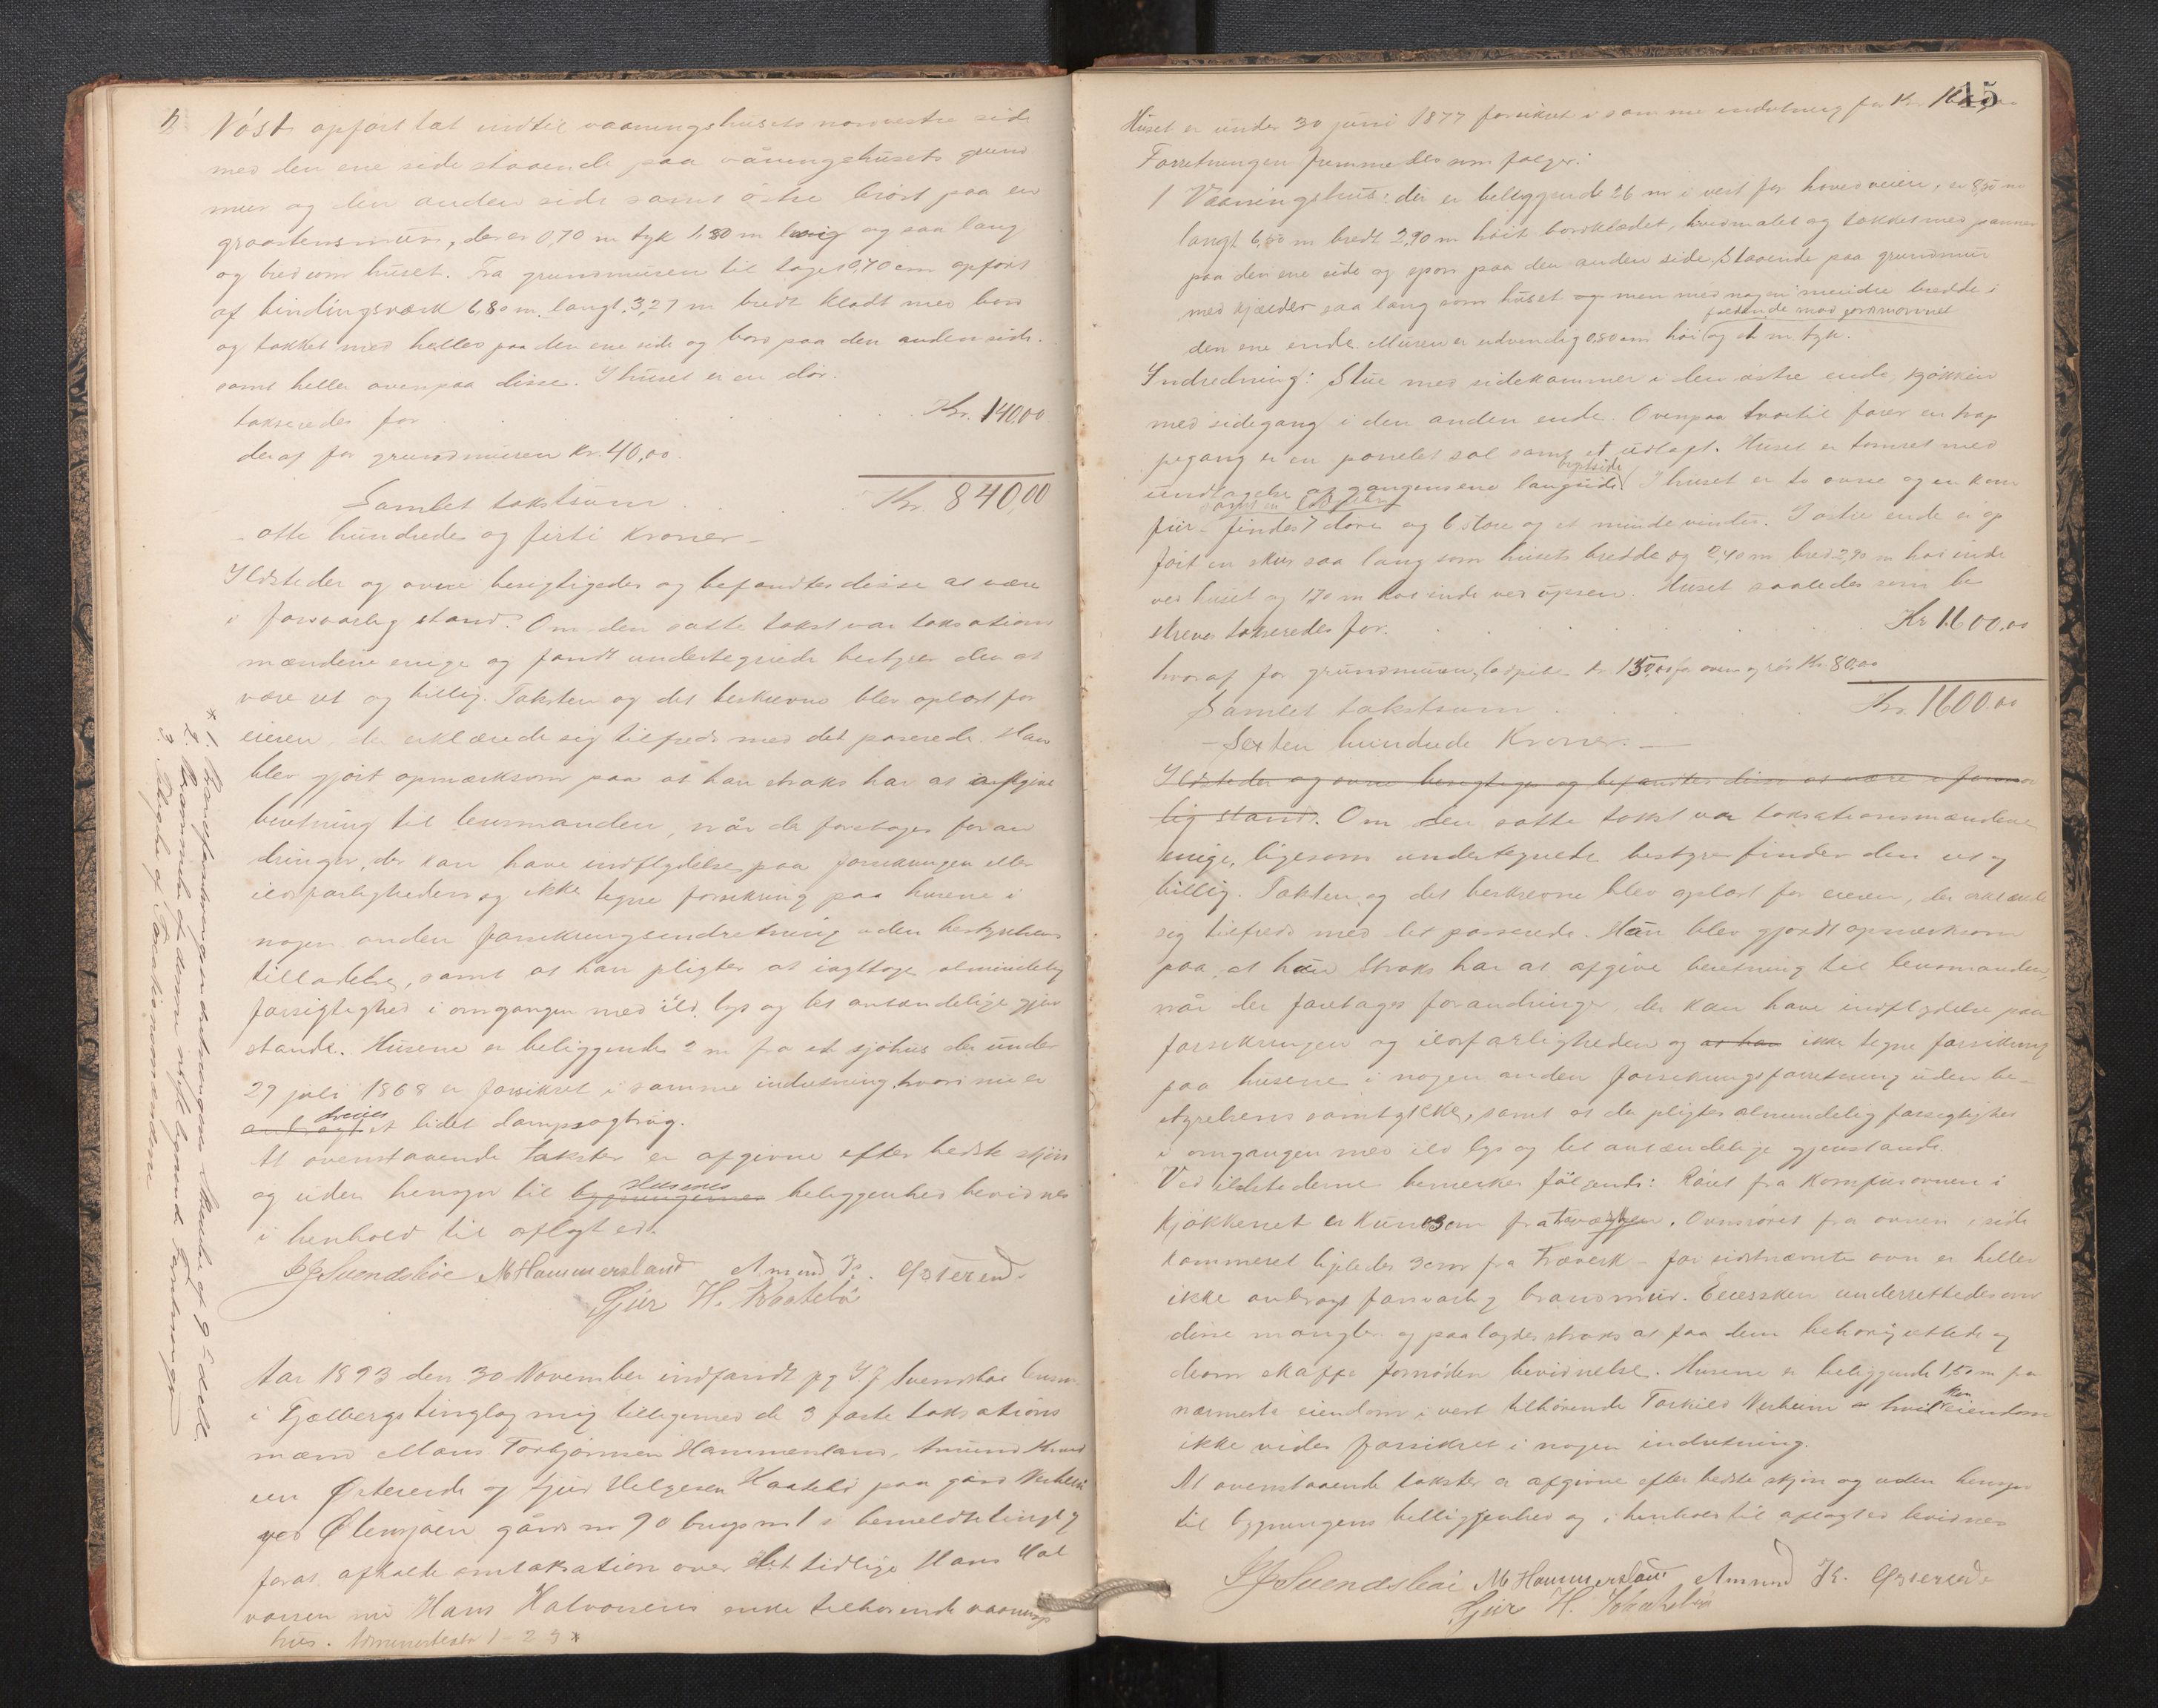 2 Nóst opført tæt indtil vaaningshusets nordvestre side
med den ene side staaende paa våningshusets grund
mur og den anden side samt østre brøst paa en
graastensmur, der er 0,70 m tyk 1,80 m høi og saa lang
og bred som huset. Fra grundmuren til taget 0,70 cm opført
af bindingsværk 6,80 m. langt. 3,27 m bredt klædt med bord
og takket med heller paa den ene side og bord paa den anden side.
samt heller ovenpaa disse. I huset er en dør.
takseredes for Kr. 140,00
deraf for grundmuren Kr. 40,00.
Samlet takstsum Kr. 840,00
- otte hundrede og firti Kroner -
Ildsteder og ovne besigtigedes og befandtes disse at være
i forsvarlig stand. Om den satte takst var taksations
mændene enige og fandt undertegnede bestyrer den at
være ret og billig. Taksten og det beskrevne blev oplæst for
eieren der erklærede sig tilfreds med det passerede. Han
blev gjort opmærksom paa at han straks har at afgive
beretning til lensmanden, når der foretages foran
dringer, der kan have indflydelse paa forsikringen eller
ildsfarligheden og ikke tegne forsikring paa husene i
nogen anden forsikringsindretning uden bestyrelsens
tilladelse, samt at han pligter at iagttage almindelig
forsigtighed i omgangen med ild, lys og let antændelige gjen
stande. Husene er beliggende 2 m fra et sjøhus der under
29 juli 1868 er forsikret i samme indretning, hvori nu er
drives
et lidet dampsagbrug.
At ovenstaaende takster er afgivne efter bedste skjøn
Husenes
og uden hensyn til bygningernes beliggenhed bevidnes
i henhold til aflagt ed.
J J Svendsbøe M Hammersland Amund K. Østerend.
Gjur H. Kaatebø
Aar 1893 den 30 November indfandt jeg J. J Svendsbøe lensm.
i Fjælbergs tinglag mig tilligemed de 3 faste taksations
mænd Mons Torbjørnsen Hammersland, Amund Knud
sen Østerende og Gjur Helgesen Kaatebø paa gård
ved Ølensjøen gårds no 90 brugs no 1 i bemeldte tinglag
forat afholde omtaksation over det tidlige Hans Hal
vorsen nu Hans Halvorsens enke tilhørende vaanings
hus. 1 - 2 3 *
* 1. Brandforsikringsindretningens Skrivelse af 9 ds.
2. Branmelde af denne
3. Taxationsmændene
15
Huset er under 30 juni 1877 forsikret i samme indretning for Kr.
Forretningen fremmedes som følger:
1 Vaaningshus: der er beliggende 26 m i vest for hovedveien, er 8,50 m
langt 6,80 m bredt 2,90 m høit bordklædet, hvidmalet og takket med panner
paa den ene side og spon paa den anden side, staaende paa grundmur
med kjælder saa lang som huset men med nogen mindre bredde i
den ene ende. Muren er udvendig 0,80 cm høi og et m. tyk.
Indredning: Stue med sidekammer i den østre ende, kjøkken
med sidegang i den anden ende. Ovenpaa hvortil fører en trap
pegang er en panelet sal samt et udloft. Huset er tømret med
undtagelse af gangens ene langside. I huset er to ovne og en kom
fur. findes 7 døre og 6 store og et mindre vindu. I østre ende er op
ført en skur saa lang som husets bredde og 2,40 m bred 2,90 m høi inde
ved huset og 1,70 m høi inde ved upsen. Huset saaledes som be
skrevet takseredes for. Kr 1600,00
hvoraf for grundmuren, ladpibe kr. 150,00 for ovne og rør Kr. 80,00
Samlet takstsum Kr. 1600,00
- Sexten hundrede Kroner. -
Ildsteder og ovne besigtiges og befandtes disse at være i forsvar
lig stand. Om den satte takst var taksationsmændene
enige, ligesom undertegnede bestyrer finder den ret og
billig. Taksten og det beskrevne blev oplæst for eieren, der erklærede
sig tilfreds med det passerede. Han blev gjordt opmerksom
paa, at han straks har at afgive beretning til lensmanden,
når der foretages forandringer, der kan have indflydelse paa
forsikringen og ildsfarligheden og at han ikke tegne forsikring
paa husene i nogen anden forsikringsforretning uden be-
styrelsens samtykke, samt at de pligter almindelig forsigtighed
i omgangen med ild lys og let antændelige gjenstande.
Ved ildstederne bemerkes følgende: Røret fra Komfurovnen i
kjøkkenet er kun 3 cm fra trævæggen. Ovnsrøret fra ovnen i side
kammeret ligeledes 3 cm fra Træverk - for sidstnævnte ovn er heller
ikke anbragt forsvarlig brandmur. Eiersken underrettedes om
disse mangler og paalagdes straks at faa dem behørig rettede og
derom skaffe fornøden bevidnelse. Husene er beliggende 1,50 m fra
nærmeste eiendom i vest tilhørende Torkild Nerheim hvilken eiendom
ikke vides forsikret i nogen indretning.
At ovenstaaende takster er afgivne efter bedste skjøn og uden hensyn
til bygningens beliggenhed og i henhold til aflagt ed bevidnes
J J Svendsbøe M Hammersland Amund K. Østerende
Gjur H. Kaatebø